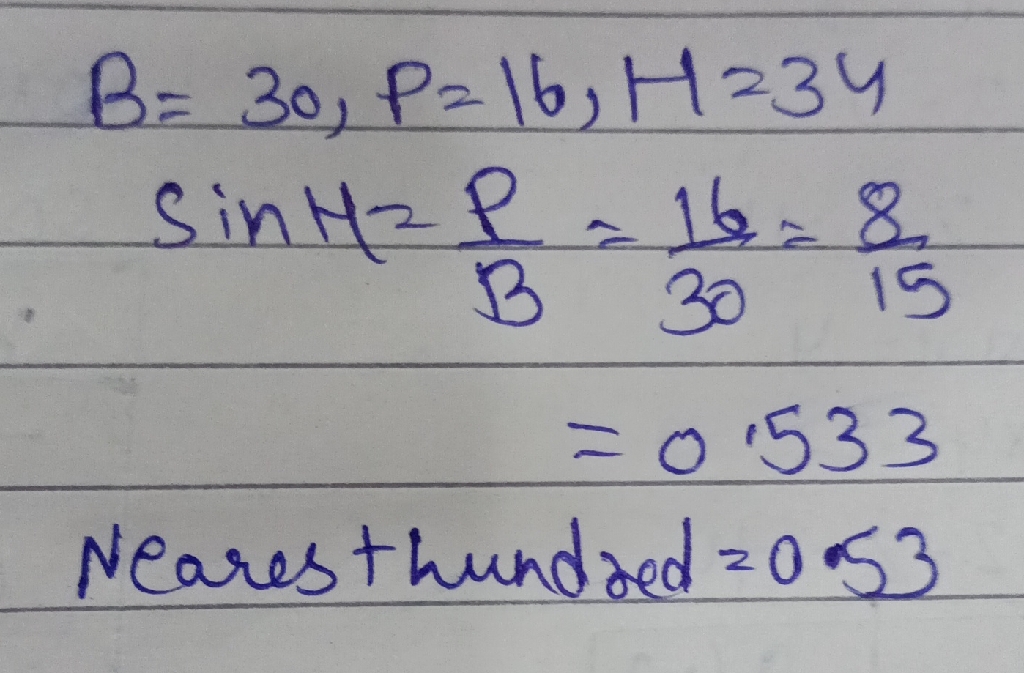 B = 30, P = 16, H = 34
Sin H = P/B = 16/30 = 8/15
= 0.533
Nearest hundred = 0.53